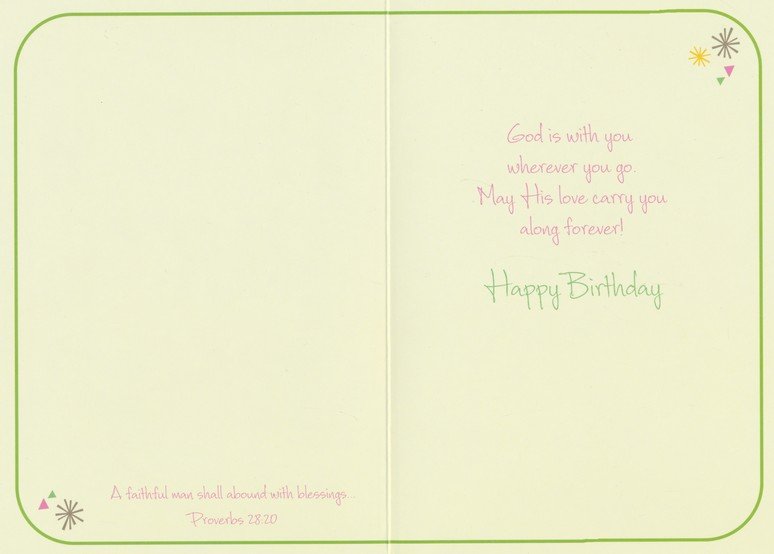 God is with you
wherever you go.
May His love carry you
along forever!
Happy Birthday
A faithful man shall abound with blessings...
Proverbs 28:20